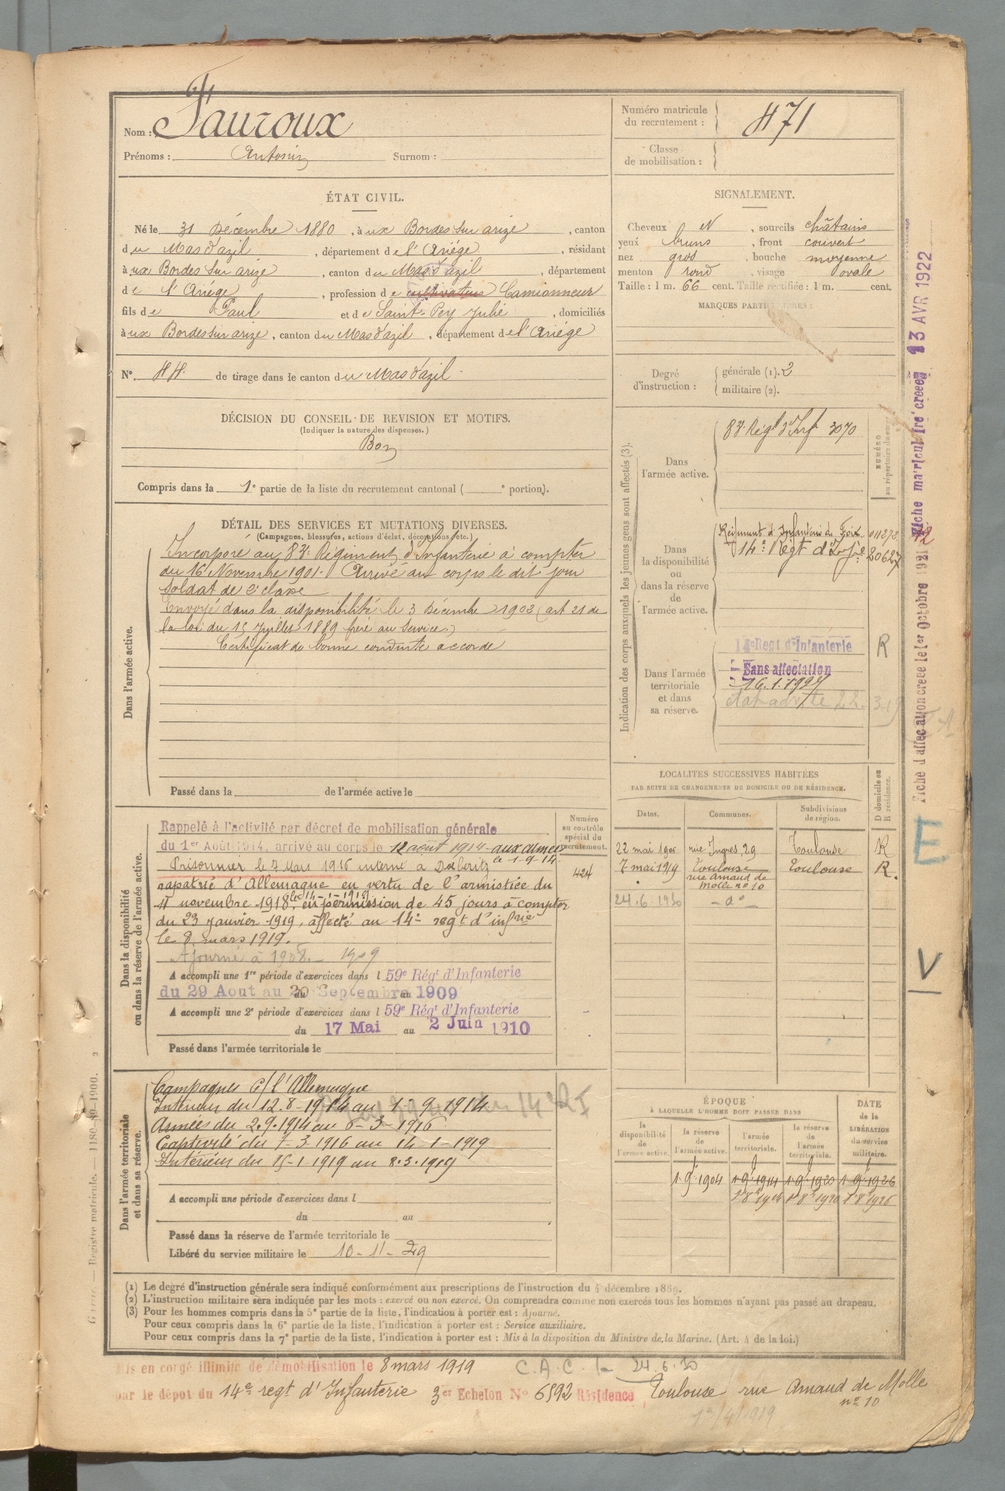 Nom : Fauroux
Prénoms : Antonin Surnom :
Numéro matricule du recrutement : 471
Classe de mobilisation :
ÉTAT CIVIL.
Né le 31 Décembre 1880, à ux Bordes sur arize, canton
du Mas d'azil, département de l'Ariège, résidant
à ux Bordes sur arize, canton du Mas d'azil, département
de l'Ariège, profession de cultivateur Camionneur
fils de Paul et de Saint-Pey Julie, domiciliés
à ux Bordes sur arize, canton du Mas d'azil, département de l'Ariège
N° 44 de tirage dans le canton du Mas d'azil
SIGNALEMENT.
Cheveux N, sourcils châtains
yeux bruns, front couvert
nez gros, bouche moyenne
menton rond, visage ovale
Taille : 1 m. 66 cent. Taille rectifiée : 1 m. cent.
MARQUES PARTICULIÈRES :
Degré d'instruction : générale (1). 2
militaire (2).
DÉCISION DU CONSEIL DE REVISION ET MOTIFS.
(Indiquer la nature des dispenses.)
Bon
Compris dans la 1e partie de la liste du recrutement cantonal ( e portion).
DÉTAIL DES SERVICES ET MUTATIONS DIVERSES.
(Campagnes, blessures, actions d'éclat, décorations, etc.)
Dans l'armée active.
Incorporé au 83e Régiment d'Infanterie à compter
du 16 Novembre 1901. Arrivé au corps le dit jour
soldat de 2e classe
Envoyé dans la disponibilité le 3 Décembre 1903 (art 21 de
la loi du 15 Juillet 1889 frère au service.)
Certificat de bonne conduite accordé
Passé dans la de l'armée active le
Indication des corps auxquels les jeunes gens sont affectés (3).
Dans l'armée active.
83e Régt d'Inf 3070
Dans la disponibilité ou dans la réserve de l'armée active.
Régiment d'Infanterie de Foix
14e Régt d'Infie
Dans l'armée territoriale et dans sa réserve.
14e Regt d'Infanterie R
Sans affectation
16.1.1927
LOCALITÉS SUCCESSIVES HABITÉES
PAR SUITE DE CHANGEMENTS DE DOMICILE OU DE RÉSIDENCE.
Dates. Communes. Subdivisions de région. D domicile ou R résidence.
22 mai 1905 rue Ingres, 29 Toulouse R
7 mai 1919 Toulouse rue arnaud de Molle no 10 Toulouse R.
24.6.1930 - do -
Dans la disponibilité ou dans la réserve de l'armée active.
Numéro au contrôle spécial du recrutement.
424
Rappelé à l'activité par décret de mobilisation générale
du 1er Août 1914, arrivé au corps le 12 août 1914 aux armées
le 1-9-14
Prisonnier le 7 Mars 1916 interné à
rapatrié d'Allemagne en vertu de l'armistice du
11 novembre 1918 en permission de 45 jours à compter
du 23 janvier 1919, affecté au 14e regt d'infrie
le 8 mars 1919.
Ajourné à 1908 1909
A accompli une 1re période d'exercices dans l 59e Régt d'Infanterie
du 29 Aout au 20 Septembre 1909
A accompli une 2e période d'exercices dans l 59e Régt d'Infanterie
du 17 Mai au 2 Juin 1910
Passé dans l'armée territoriale le
Dans l'armée territoriale et dans sa réserve.
Campagnes C/ l'Allemagne
Intérieur du 12.8-1914 au 1-9-1914
Armées du 2.9.1914 au 6-3-1916
Captivité du 7-3.1916 au 14-1-1919
Intérieur du 15-1-1919 au 8.3.1919
A accompli une période d'exercices dans l
du au
Passé dans la réserve de l'armée territoriale le
Libéré du service militaire le 10-11-29
ÉPOQUE
À LAQUELLE L'HOMME DOIT PASSER DANS
la disponibilité de l'armée active. la réserve de l'armée active. l'armée territoriale. la réserve de l'armée territoriale. DATE de la LIBÉRATION du service militaire.
1.9bre 1904 1.9bre 1914 1.9bre 1920 1.9bre 1926
(1) Le degré d'instruction générale sera indiqué conformément aux prescriptions de l'instruction du 4 décembre 1889.
(2) L'instruction militaire sera indiquée par les mots : exercé ou non exercé. On comprendra comme non exercés tous les hommes n'ayant pas passé au drapeau.
(3) Pour les hommes compris dans la 5e partie de la liste, l'indication à porter est : Ajourné.
Pour ceux compris dans la 6e partie de la liste, l'indication à porter est : Service auxiliaire.
Pour ceux compris dans la 7e partie de la liste, l'indication à porter est : Mis à la disposition du Ministre de la Marine. (Art. 4 de la loi.)
Mis en congé illimité de démobilisation le 8 mars 1919 C.A.C. le 24.6.30
par le dépot du 14e regt d'Infanterie 3er Echelon No 6592 Résidence Toulouse rue Arnaud de Molle
no 10
Fiche d'affectation creee le 1er octobre 1921 Fiche matriculaire creee 13 AVR 1922
E
V